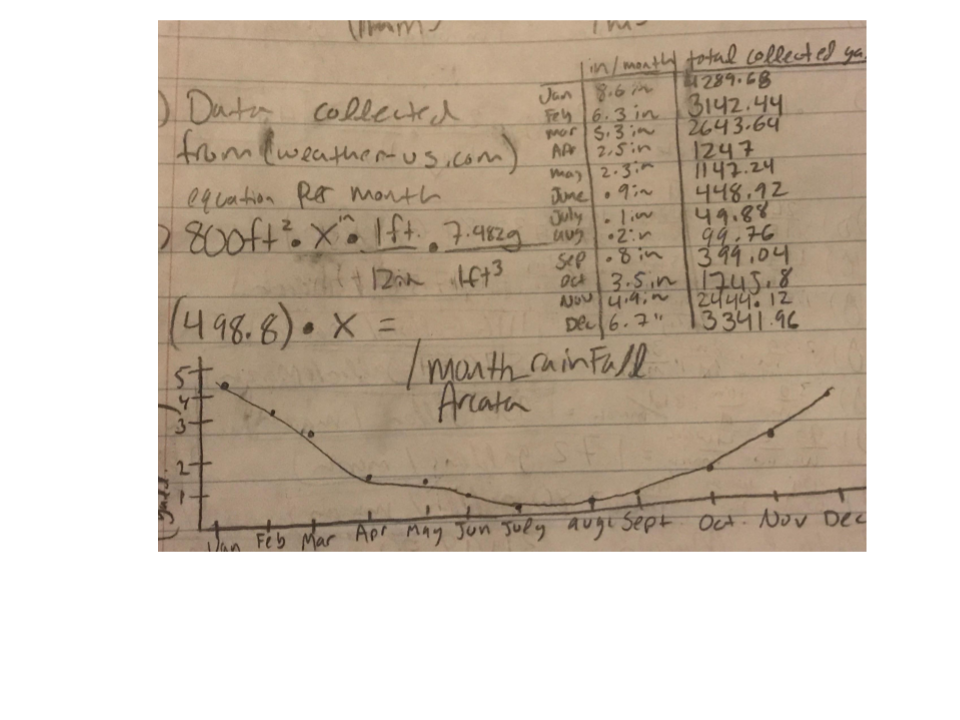 in/month total collected ga
Data collected
from (weather-us.com)
equation Per month
800ft² • X in • 1ft. • 7.482g
12in 1ft³
(498.8) • X =
Jan 8.6 in 4289.68
Feb 6.3 in 3142.44
mar 5.3 in 2643.64
Apr 2.5in 1247
may 2.3in 1147.24
June .9in 448.92
July .1in 49.88
aug .2in 99.76
Sep .8 in 399.04
Oct 3.5 in 1745.8
Nov 4.9in 2444.12
Dec 6.7" 3341.96
/month rainfall
Arcata
5
4
3
2
1
Jan Feb Mar Apr May Jun July aug Sept Oct. Nov Dec